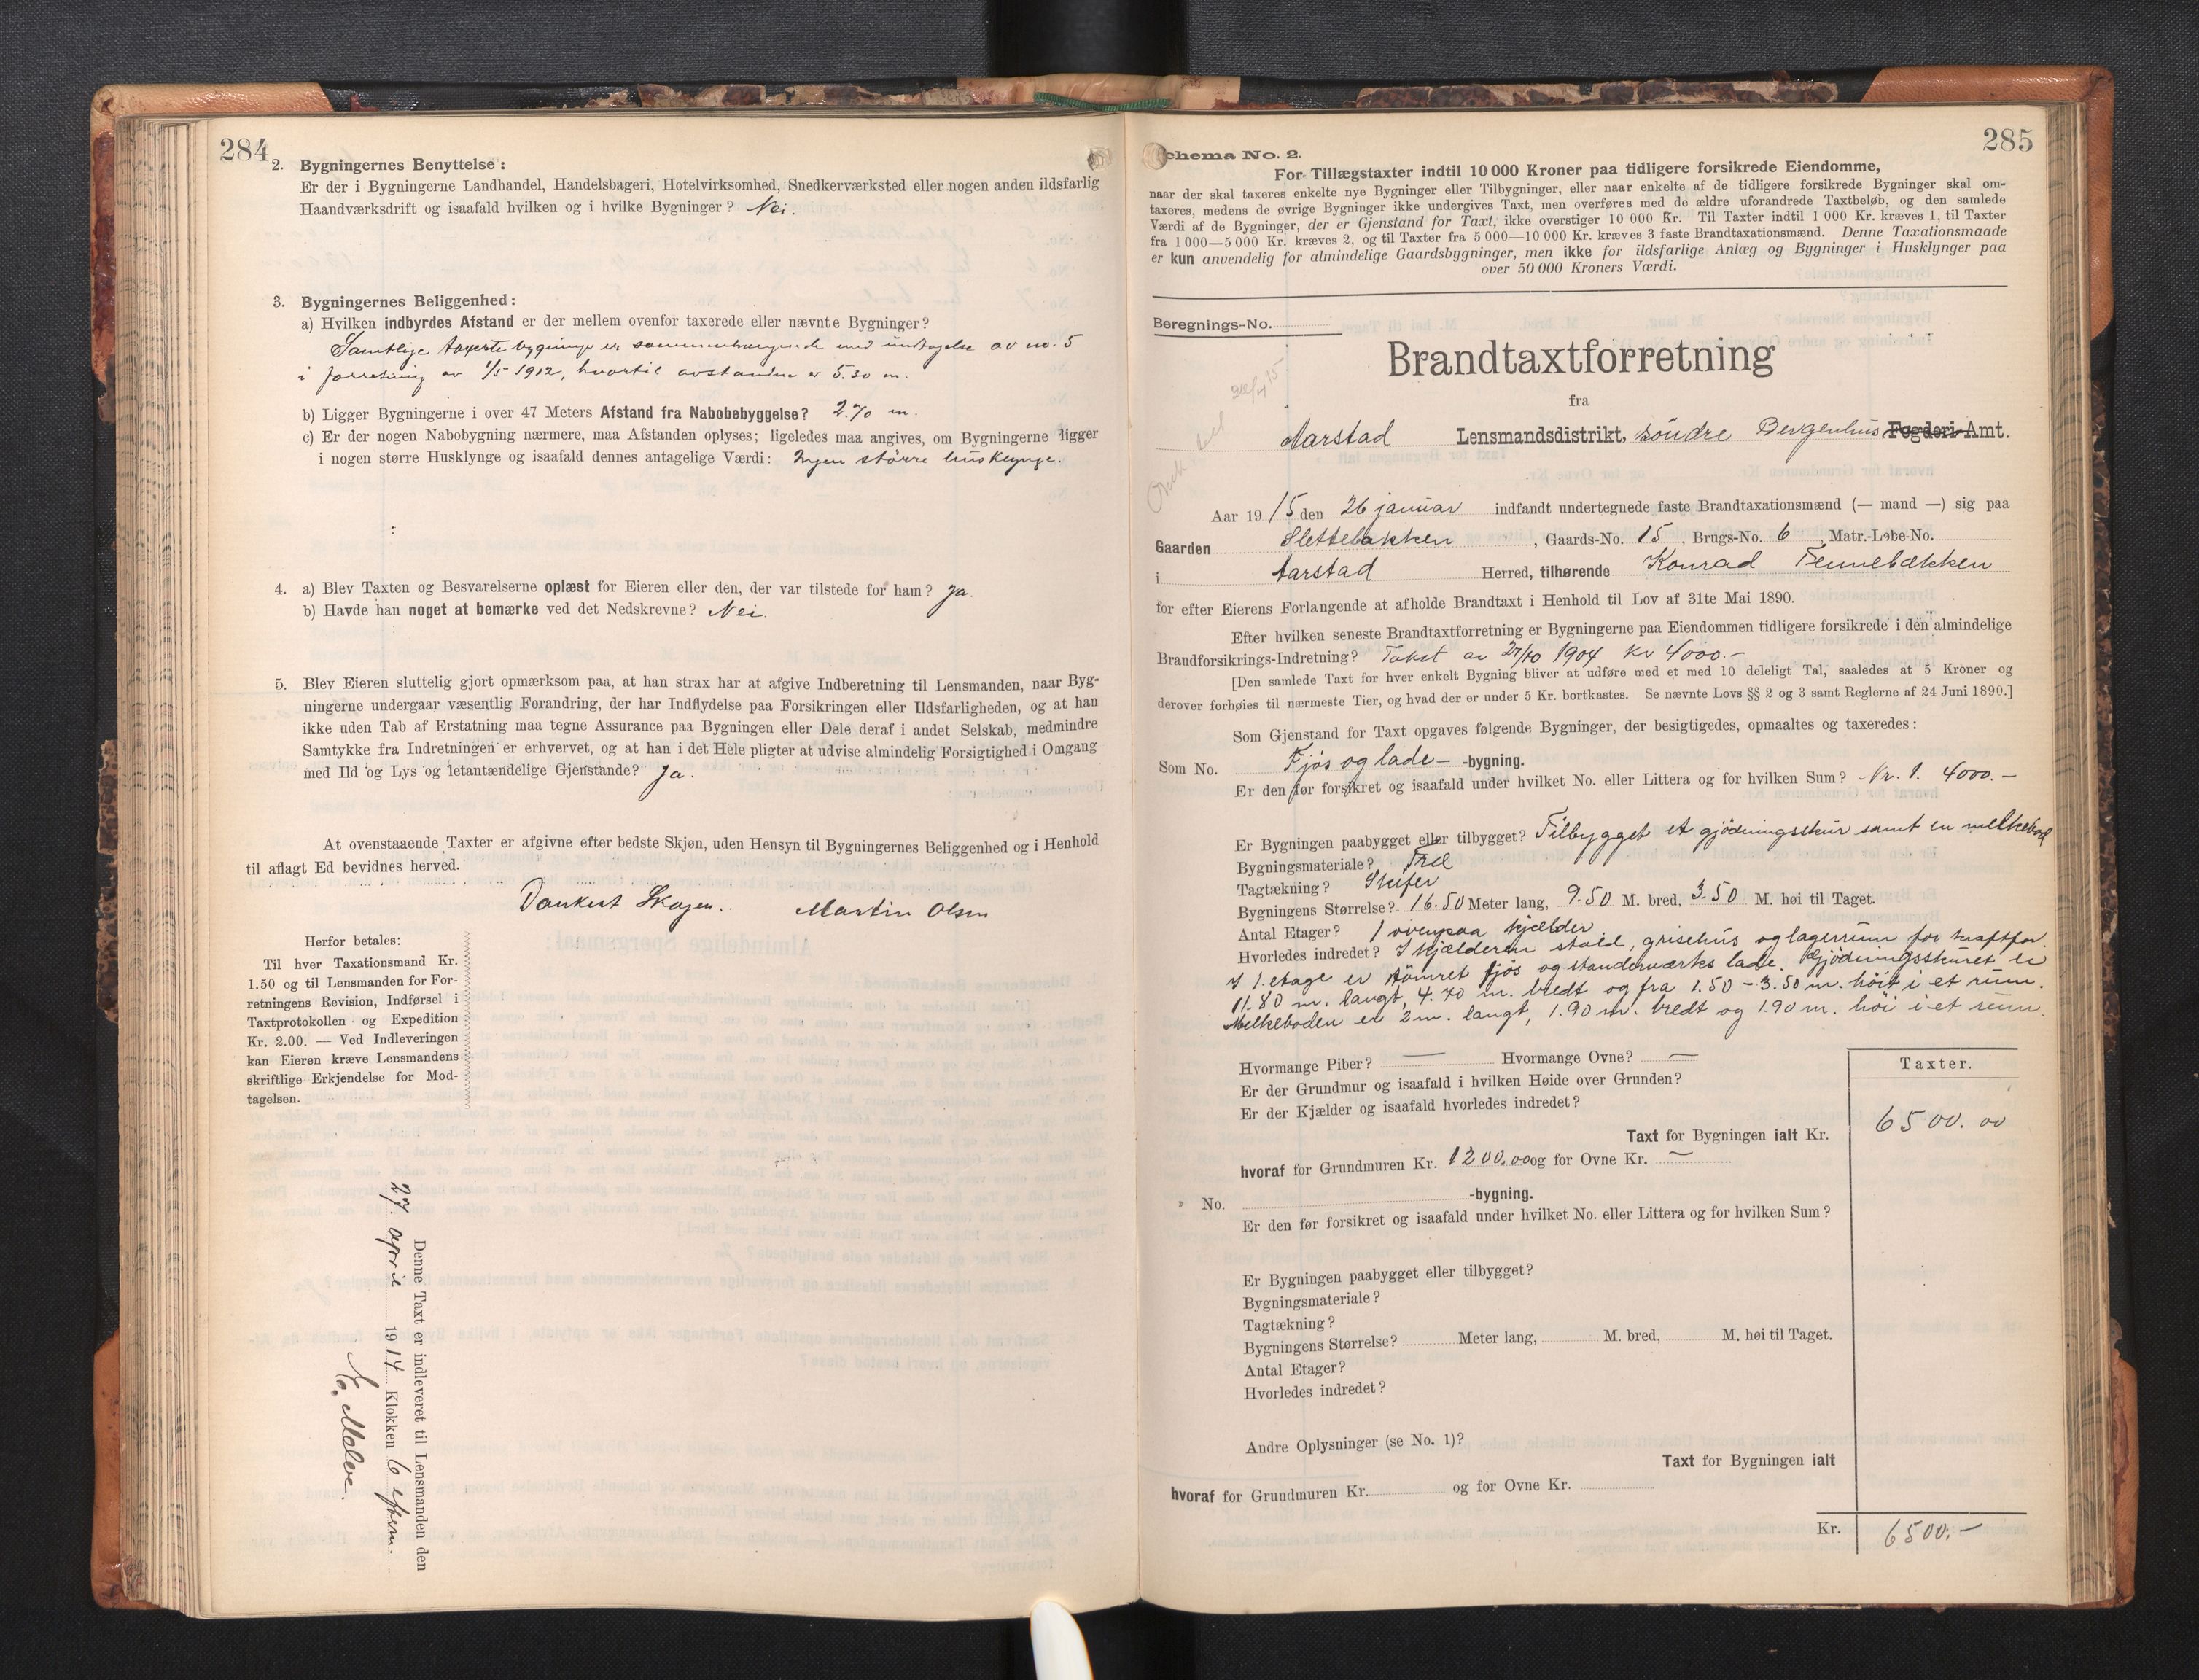 284
2. Bygningernes Benyttelse:
Er der i Bygningerne Landhandel, Handelsbageri, Hotelvirksomhed, Snedkerværksted eller nogen anden ildsfarlig
Haandværksdrift og isaafald hvilken og i hvilke Bygninger? Nei.
3. Bygningernes Beliggenhed:
a) Hvilken indbyrdes Afstand er der mellem ovenfor taxerede eller nævnte Bygninger?
Samtlige taxerte bygninger er sammenhængende med undtagelse av no. 5
i forretning av 1/5 1912, hvortil avstanden er 5.30 m.
b) Ligger Bygningerne i over 47 Meters Afstand fra Nabobebyggelse? 2.70 m.
c) Er der nogen Nabobygning nærmere, maa Afstanden oplyses; ligeledes maa angives, om Bygningerne ligger
i nogen større Husklynge og isaafald dennes antagelige Værdi: Ingen större husklynge.
4. a) Blev Taxten og Besvarelserne oplæst for Eieren eller den, der var tilstede for ham? Ja.
b) Havde han noget at bemærke ved det Nedskrevne? Nei.
5. Blev Eieren sluttelig gjort opmærksom paa, at han strax har at afgive Indberetning til Lensmanden, naar Byg-
ningerne undergaar væsentlig Forandring, der har Indflydelse paa Forsikringen eller Ildsfarligheden, og at han
ikke uden Tab af Erstatning maa tegne Assurance paa Bygningen eller Dele deraf i andet Selskab, medmindre
Samtykke fra Indretningen er erhvervet, og at han i det Hele pligter at udvise almindelig Forsigtighed i Omgang
med Ild og Lys og letantændelige Gjenstande? Ja.
At ovenstaaende Taxter er afgivne efter bedste Skjøn, uden Hensyn til Bygningernes Beliggenhed og i Henhold
til aflagt Ed bevidnes herved.
Dankert Skagen. Martin Olsen
Herfor betales:
Til hver Taxationsmand Kr.
1.50 og til Lensmanden for For-
retningens Revision, Indførsel i
Taxtprotokollen og Expedition
Kr. 2.00. — Ved Indleveringen
kan Eieren kræve Lensmandens
skriftlige Erkjendelse for Mod-
tagelsen.
Denne Taxt er indleveret til Lensmanden den
27 april 1914 Klokken 6 efterm.
285
Schema No. 2.
For Tillægstaxter indtil 10 000 Kroner paa tidligere forsikrede Eiendomme,
naar der skal taxeres enkelte nye Bygninger eller Tilbygninger, eller naar enkelte af de tidligere forsikrede Bygninger skal om-
taxeres, medens de øvrige Bygninger ikke undergives Taxt, men overføres med de ældre uforandrede Taxtbeløb, og den samlede
Værdi af de Bygninger, der er Gjenstand for Taxt, ikke overstiger 10 000 Kr. Til Taxter indtil 1 000 Kr. kræves 1, til Taxter
fra 1 000—5 000 Kr. kræves 2, og til Taxter fra 5 000—10 000 Kr. kræves 3 faste Brandtaxationsmænd. Denne Taxationsmaade
er kun anvendelig for almindelige Gaardsbygninger, men ikke for ildsfarlige Anlæg og Bygninger i Husklynger paa
over 50 000 Kroners Værdi.
Beregnings-No.
Brandtaxtforretning
fra
Aarstad Lensmandsdistrikt, söndre Bergenhus Fogderi Amt.
Aar 1915 den 26 januar indfandt undertegnede faste Brandtaxationsmænd (— mand —) sig paa
Gaarden Slettebakken, Gaards-No. 15, Brugs-No. 6, Matr.-Løbe-No.
i Aarstad Herred, tilhørende Konrad Tennebækken
for efter Eierens Forlangende at afholde Brandtaxt i Henhold til Lov af 31te Mai 1890.
Efter hvilken seneste Brandtaxtforretning er Bygningerne paa Eiendommen tidligere forsikrede i den almindelige
Brandforsikrings-Indretning? Takst av 27/10 1904 Kr 4000.-
[Den samlede Taxt for hver enkelt Bygning bliver at udføre med et med 10 deleligt Tal, saaledes at 5 Kroner og
derover forhøies til nærmeste Tier, og hvad der er under 5 Kr. bortkastes. Se nævnte Lovs §§ 2 og 3 samt Reglerne af 24 Juni 1890.]
Som Gjenstand for Taxt opgaves følgende Bygninger, der besigtigedes, opmaaltes og taxeredes:
Som No. Fjös og lade- -bygning.
Er den før forsikret og isaafald under hvilket No. eller Littera og for hvilken Sum? Nr. 1. 4000.-
Er Bygningen paabygget eller tilbygget? Tilbygget et gjödningsskur samt en melkebod
Bygningsmateriale? Træ
Tagtækning? Skifer
Bygningens Størrelse? 16.50 Meter lang, 9.50 M. bred, 3.50 M. høi til Taget.
Antal Etager? 1 ovenpaa kjælder
Hvorledes indredet? I kjælderen stald, grisehus og lagerrum for kraftfor.
I 1. etage er tömret fjös og standerværks lade. Gjödningsskuret er
11.80 m. langt, 4.70 m. bredt og fra 1.50 - 3.50 m. höit i et rum.
Melkeboden er 2 m. langt, 1.90 m. bredt og 1.90 m. höi i et rum.
Hvormange Piber? — Hvormange Ovne? —
Er der Grundmur og isaafald i hvilken Høide over Grunden?
Er der Kjælder og isaafald hvorledes indredet?
Taxter.
Taxt for Bygningen ialt Kr. 6500.00
hvoraf for Grundmuren Kr. 1200.00 og for Ovne Kr. —
» No. -bygning.
Er den før forsikret og isaafald under hvilket No. eller Littera og for hvilken Sum?
Er Bygningen paabygget eller tilbygget?
Bygningsmateriale?
Tagtækning?
Bygningens Størrelse? Meter lang, M. bred, M. høi til Taget.
Antal Etager?
Hvorledes indredet?
Andre Oplysninger (se No. 1)?
Taxt for Bygningen ialt
hvoraf for Grundmuren Kr. og for Ovne Kr.
Kr. 6500.-